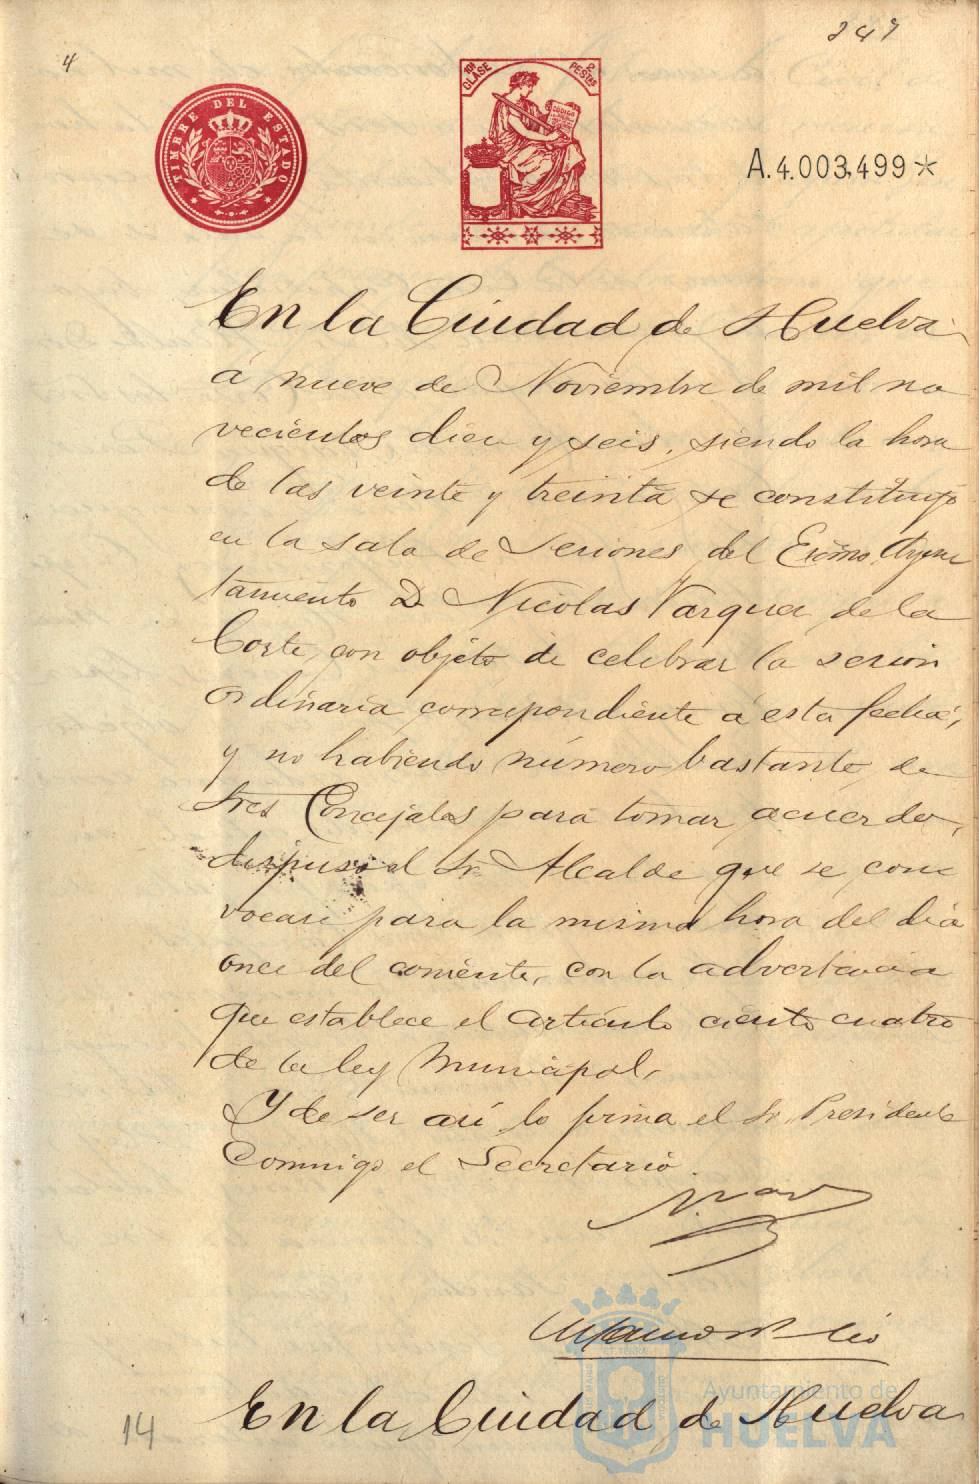 247
4
TIMBRE DEL ESTADO
10ª CLASE
2 PESETAS
A.4.003,499*
En la Ciudad de Huelva
á nueve de Noviembre de mil no
vecientos diez y seis, siendo la hora
de las veinte y treinta se constituyó
en la sala de Sesiones del Excmo. Ayun
tamiento D. Nicolas Vazquez de la
Corte, con objeto de celebrar la sesion
ordinaria correspondiente á esta fecha,
y no habiendo número bastante de
Sres Concejales para tomar acuerdo,
dispuso el Sr Alcalde que se con
vocase para la misma hora del dia
once del corriente, con la advertencia
que establece el artículo ciento cuatro
de la ley Municipal.
Y de ser así lo firma el Sr. Presidente
Conmigo el Secretario.
14
En la Ciudad de Huelva
Ayuntamiento de
HUELVA